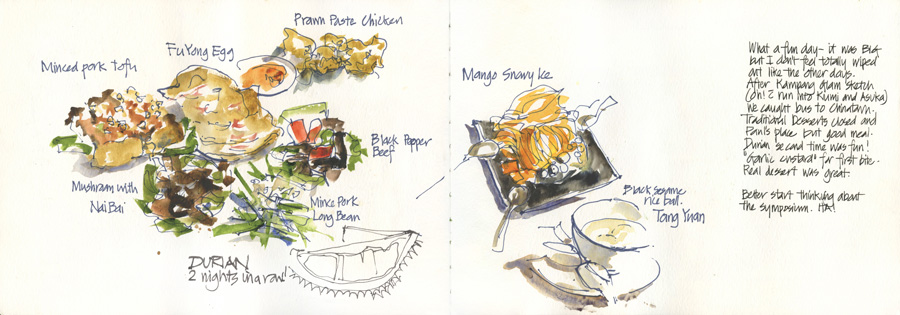 Prawn Paste Chicken
Fu Yong Egg
Minced pork tofu
Black Pepper
Beef
Mushroom with
Nai Bai
Mince Pork
Long Bean
DURIAN
2 nights in a row!
Mango Snowy Ice
Black sesame
rice ball.
Tang Yuan
What a fun day - it was BIG
but I don't feel totally wiped
out like the other days.
After Kampong Glam Sketch
(Oh! I run into Kumi and Asuka)
We caught bus to Chinatown.
Traditional Desserts closed and
place but good meal.
Durian second time was fun!
"Garlic custard" for first bite.
Real dessert was great.
Better start thinking about
the symposium. HA!